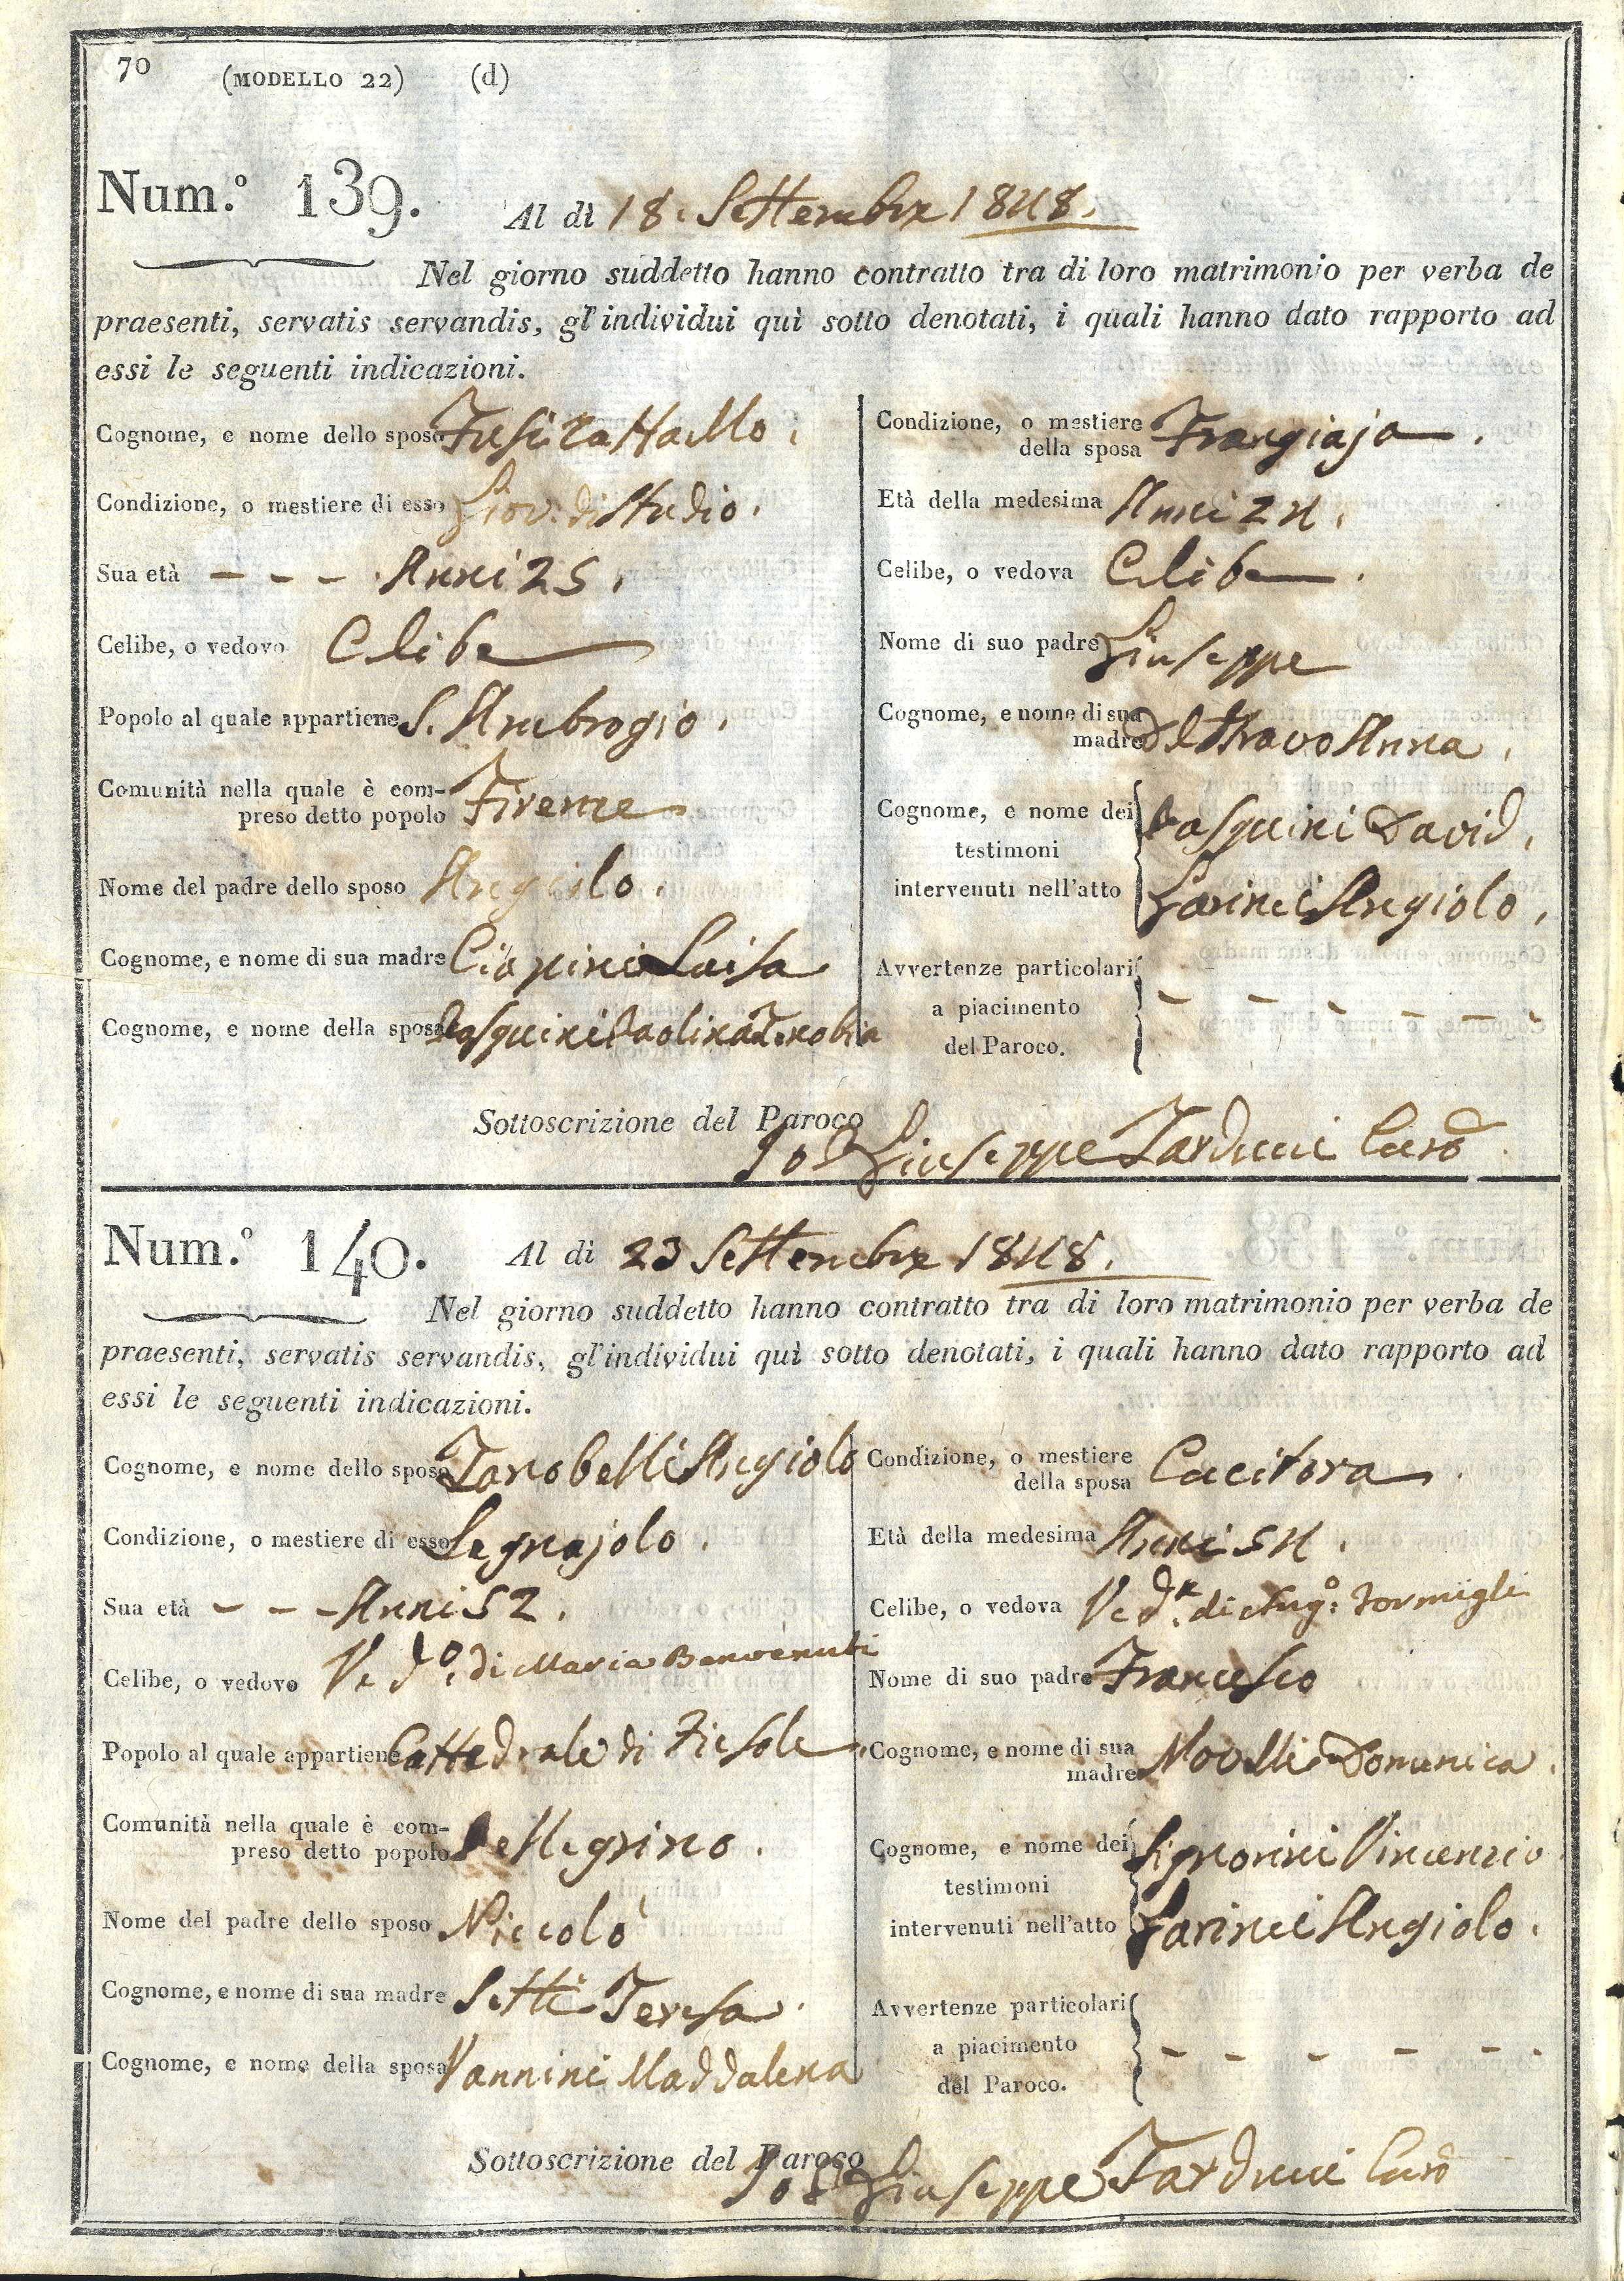 70 (MODELLO 22) (d)
Num.º 139. Al dì 18. Settembre 1848.
Nel giorno suddetto hanno contratto tra di loro matrimonio per verba de
praesenti, servatis servandis, gl'individui quì sotto denotati, i quali hanno dato rapporto ad
essi le seguenti indicazioni.
Cognome, e nome dello sposo Fusi Raffaello.
Condizione, o mestiere di esso Giov. di Studio.
Sua età - - - Anni 25.
Celibe, o vedovo Celibe
Popolo al quale appartiene S. Ambrogio.
Comunità nella quale è com-
preso detto popolo Firenze
Nome del padre dello sposo Angiolo.
Cognome, e nome di sua madre Ciapini Luisa
Cognome, e nome della sposa Pasquini Paolina Zenobia
Condizione, o mestiere
della sposa Frangiaja.
Età della medesima Anni 24.
Celibe, o vedova Celibe.
Nome di suo padre Giuseppe
Cognome, e nome di sua
madre Del Bravo Anna.
Cognome, e nome dei Pasquini David.
testimoni
intervenuti nell'atto Zarinei Angiolo.
Avvertenze particolari
a piacimento - - - - - -
del Paroco.
Sottoscrizione del Paroco
Io P Giuseppe Tarducci Curº.
Num.º 140. Al dì 23 Settembre 1848.
Nel giorno suddetto hanno contratto tra di loro matrimonio per verba de
praesenti, servatis servandis, gl'individui quì sotto denotati, i quali hanno dato rapporto ad
essi le seguenti indicazioni.
Cognome, e nome dello sposo Zanobetti Angiolo
Condizione, o mestiere di esso Legnajolo.
Sua età - - - Anni 52.
Celibe, o vedovo Vedº. di Maria Benvenuti
Popolo al quale appartiene Cattedrale di Fiesole.
Comunità nella quale è com-
preso detto popolo Pellegrino.
Nome del padre dello sposo Niccolò
Cognome, e nome di sua madre Setti Teresa.
Cognome, e nome della sposa Vannini Maddalena
Condizione, o mestiere
della sposa Cucitora.
Età della medesima Anni 54.
Celibe, o vedova Vedª. di Angº: Formigli
Nome di suo padre Francesco
Cognome, e nome di sua
madre Novelli Domenica.
Cognome, e nome dei Signorini Vincenzio
testimoni
intervenuti nell'atto Zarinei Angiolo.
Avvertenze particolari
a piacimento - - - - - -
del Paroco.
Sottoscrizione del Paroco
Io P Giuseppe Tarducci Curº